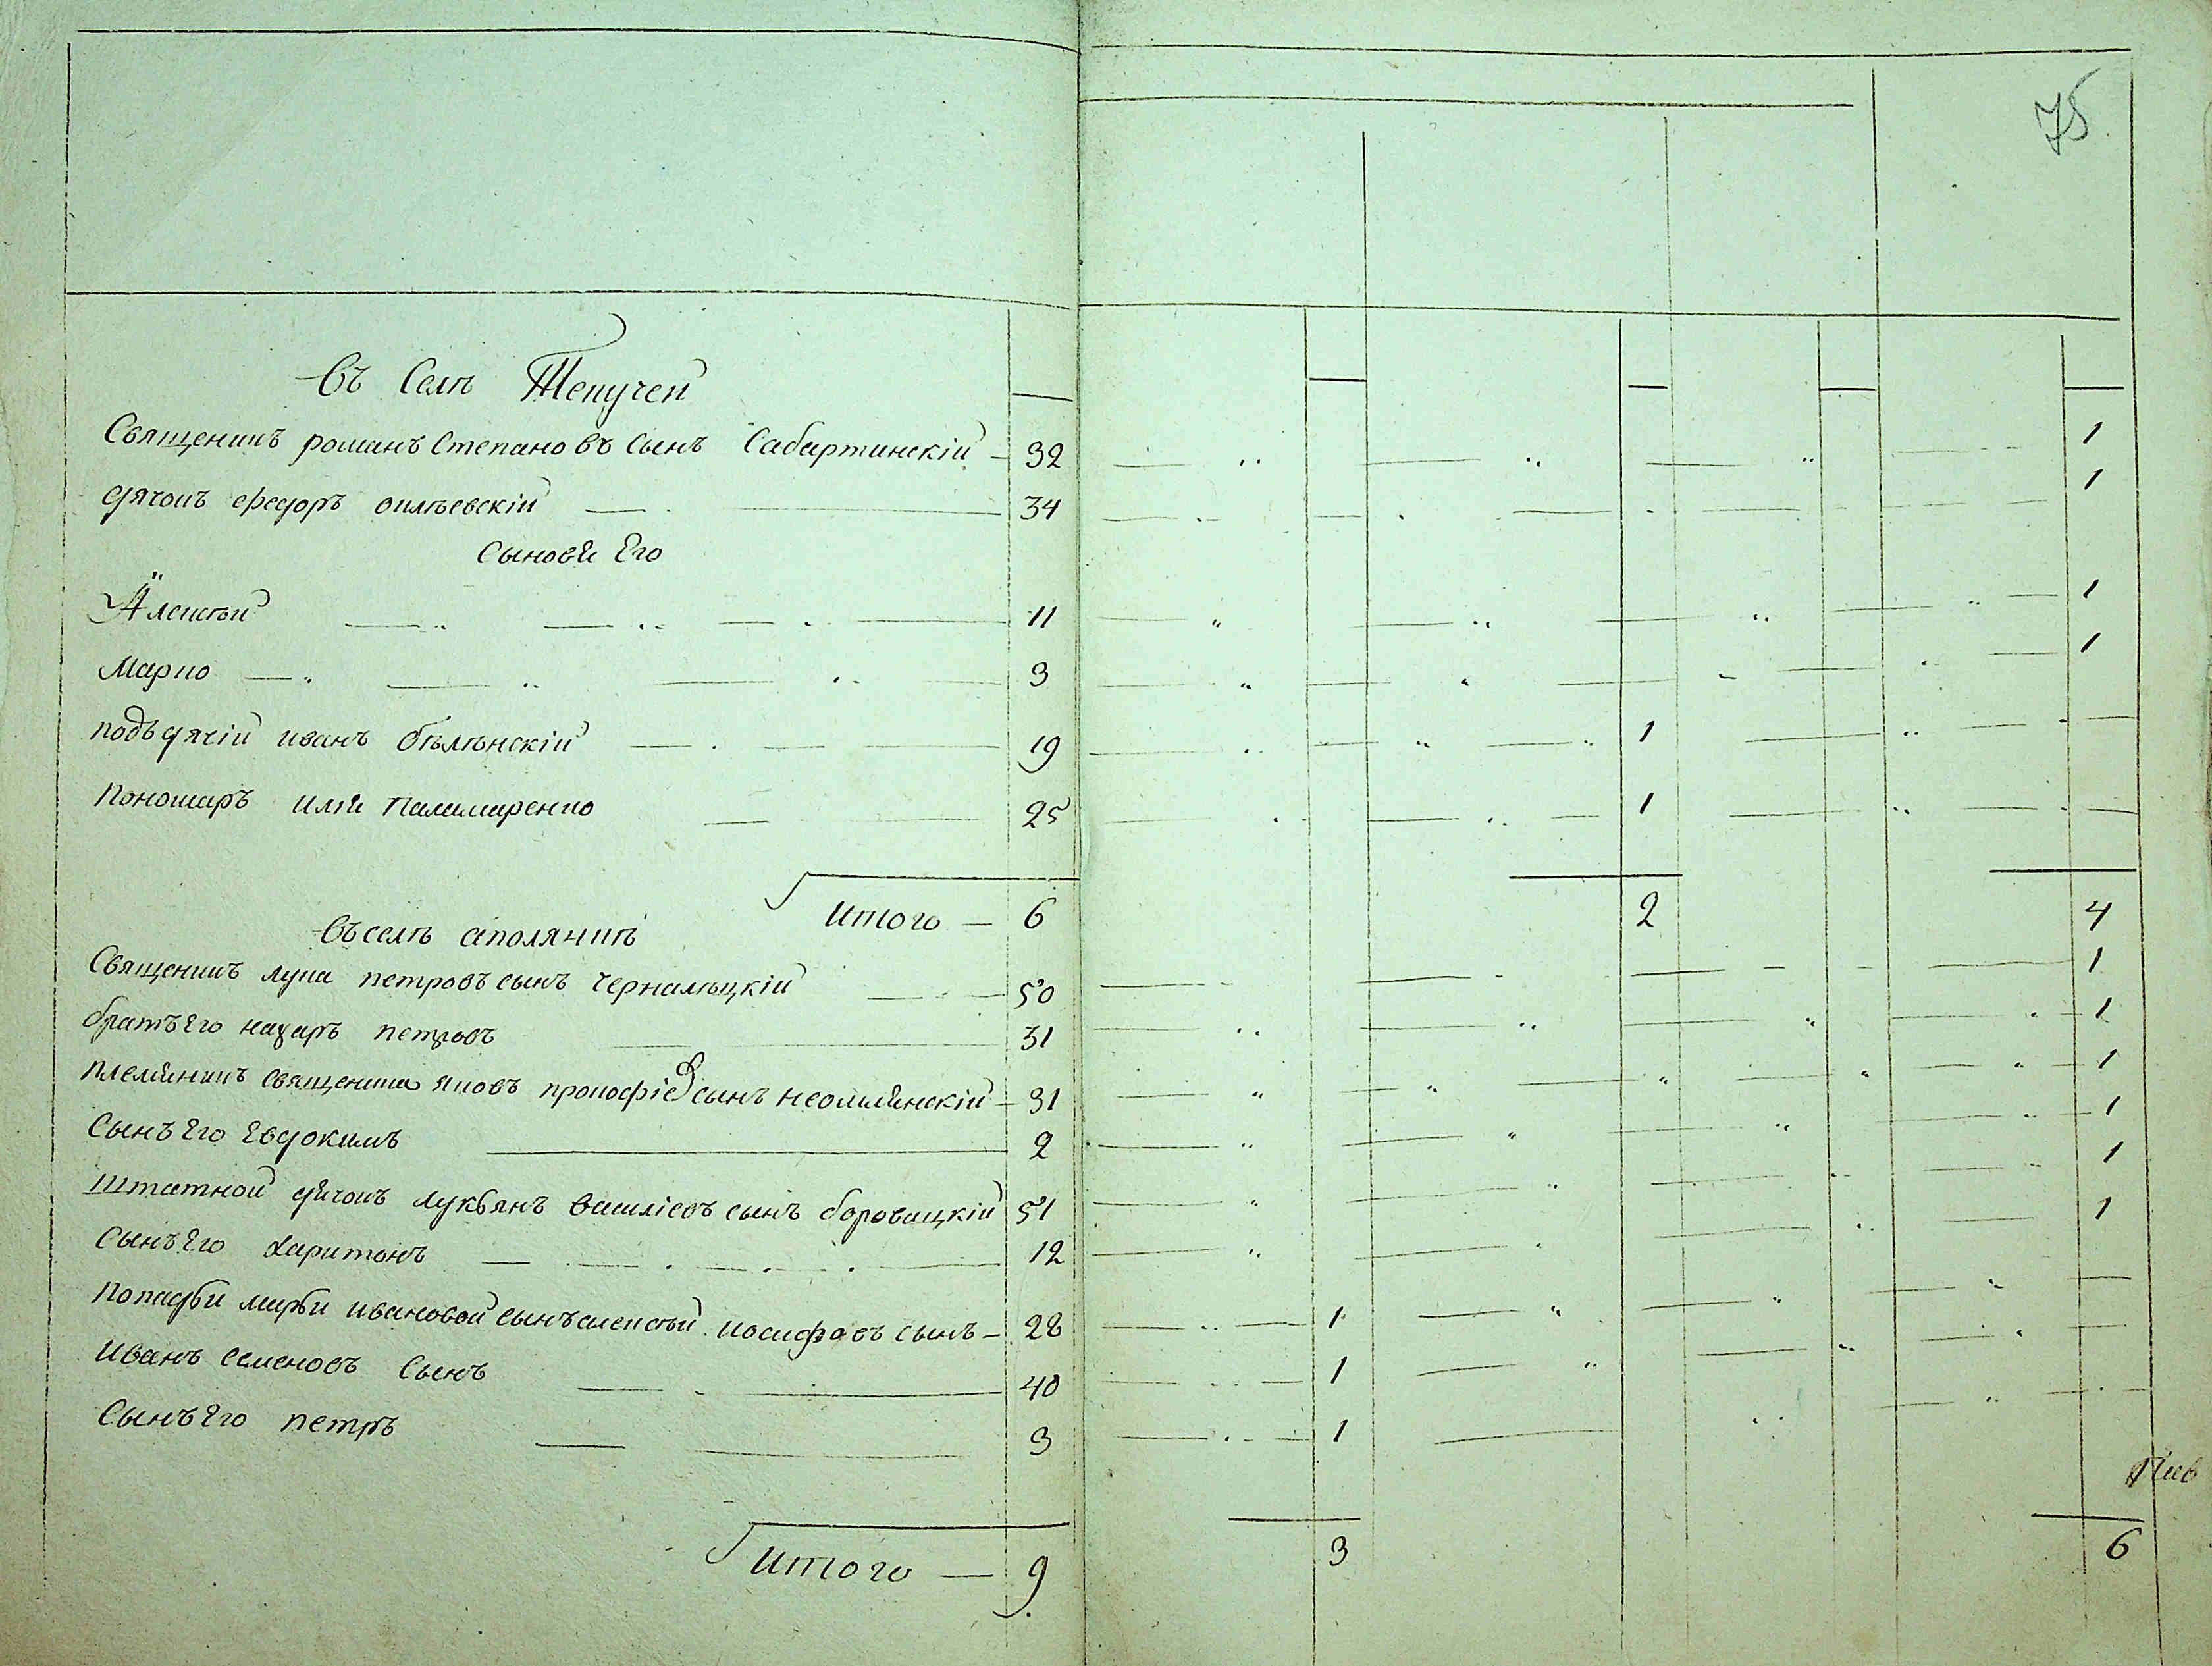 75.
Въ Селѣ Текучей
Священикъ романъ Степановъ сынъ Сабартинскій — 32 1
дячокъ федоръ 34 1
Сыновя Его
Алексѣй 11 1
Марко 3 1
подъдячій иванъ бѣлѣнскій 19 1
Пономаръ илія Паламаренко 25 1
Итого — 6 2 4
Въ селѣ
Священикъ лука петровъ сынъ 50 1
братъ Его назаръ петровъ 31 1
племянникъ священика яковъ прокофіевъ сынъ 31 1
Сынъ Его Евдокимъ 2 1
Штатной дячокъ лукьянъ василіевъ сынъ боровицкій 51 1
Сынъ Его харитонъ 12 1
Попадьи марьи ивановой сынъ алексѣй иосифовъ сынъ — 28 1
Иванъ семеновъ Сынъ 40 1
Сынъ Его петръ 3 1
Итого — 9 3 6